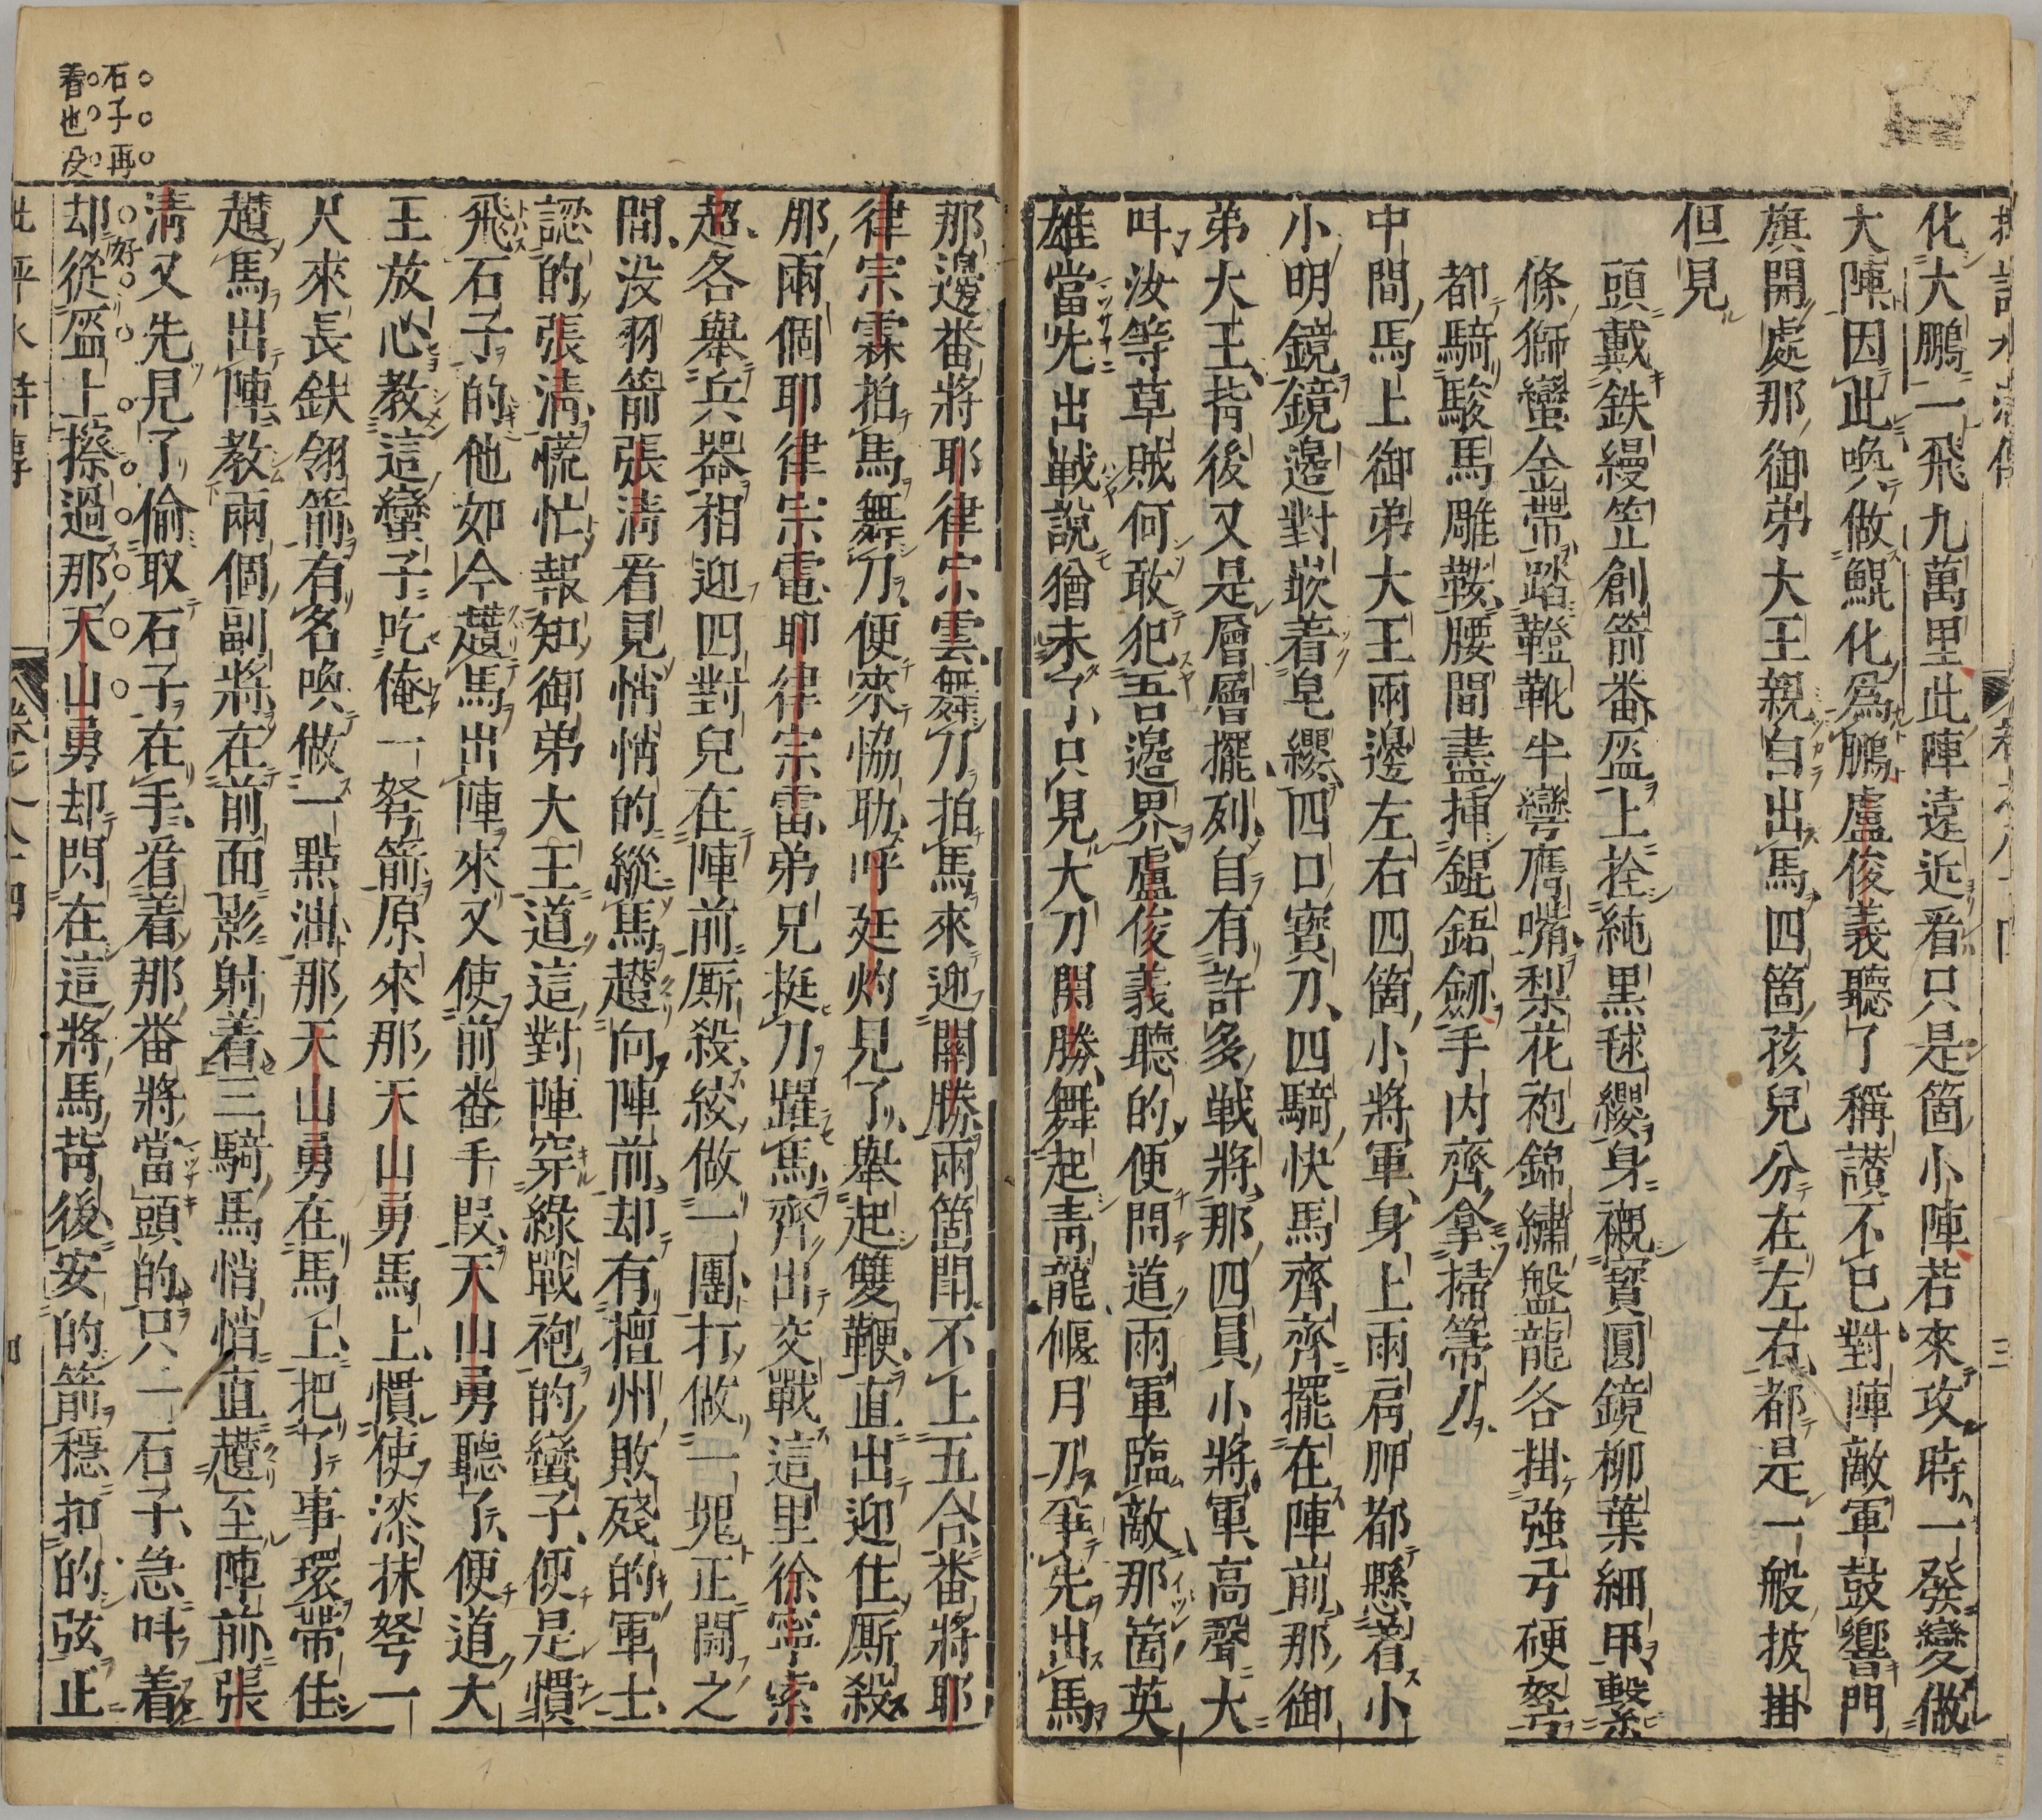 化大鵬一飛九萬里此陣遠近看只是箇小陣若來攻時一發變做
大陣因此喚做鯤化爲鵬盧俊義聽了稱讃不已對陣敵軍鼓響門
旗開處那御弟大王親自出馬四箇孩兒分在左右都是一般披掛
但見
頭戴鉄縵笠創箭番盔上拴純黒毬纓身襯寳圓鏡柳葉細甲繫
條獅蠻金帶踏鞾靴半彎鷹嘴梨花袍錦繡盤龍各掛強弓硬弩
都騎駿馬雕鞍腰間盡挿錕鋙劒手内齊拿掃箒刀
中間馬上御弟大王兩邊左右四箇小將軍身上兩肩胛都懸着小
小明鏡鏡邉對嵌着皂纓四口寳刀四騎快馬齊齊擺在陣前那御
弟大王背後又是層層擺列自有許多戦將那四員小將軍高聲大
呌汝等草賊何敢犯吾邉界盧俊義聽的便問道兩軍臨敵那箇英
雄當先出戦説猶未了只見大刀関勝舞起青龍偃月刀爭先出馬
那邊番將耶律宗雲舞刀拍馬來迎關勝兩箇閗不上五合番將耶
律宗霖拍馬舞刀便來恊助呼延灼見了舉起雙鞭直出迎住厮殺
那兩個耶律宗電耶律宗雷弟兄挺刀躍馬齊出交戰這里徐寧索
超各舉兵器相迎四對兒在陣前厮殺絞做一團打做一塊正鬪之
間没羽箭張清看見悄悄的縱馬趲向陣前却有檀州敗殘的軍士
認的張清慌忙報知御弟大王道這對陣穿綠戰袍的蠻子便是慣
飛石子的他如今趲馬出陣來又使前番手段天山勇聽了便道大
王放心教這蠻子吃俺一弩箭原來那天山勇馬上慣使漆抹弩一
尺來長鉄翎箭有名喚做一點油那天山勇在馬上把了事環帶住
趲馬出陣教兩個副將在前面影射着三騎馬悄悄直趲至陣前張
清又先見了偷取石子在手看着那番將當頭的只一石子急呌着
却從盔上擦過那天山勇却閃在這將馬背後安的箭穩扣的弦正
好
石子再
看也没
三